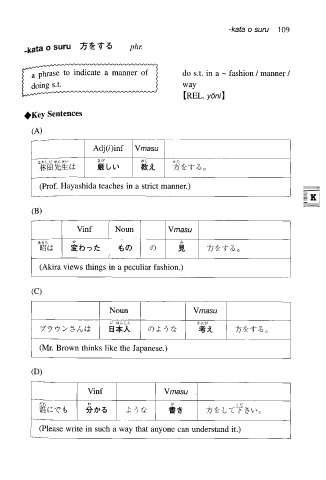 -kata o suru 109
-kata o suru 方をする phr.
a phrase to indicate a manner of
doing s.t.
do s.t. in a ~ fashion / manner /
way
【REL. yōni】
◆Key Sentences
(A)
Adj(i)inf Vmasu
林田先生は 厳しい 教え 方をする。
(Prof. Hayashida teaches in a strict manner.)
K
(B)
Vinf Noun Vmasu
昭は 変わった もの の 見 方をする。
(Akira views things in a peculiar fashion.)
(C)
Noun Vmasu
ブラウンさんは 日本人 のような 考え 方をする。
(Mr. Brown thinks like the Japanese.)
(D)
Vinf Vmasu
誰にでも 分かる ような 書き 方をして下さい。
(Please write in such a way that anyone can understand it.)